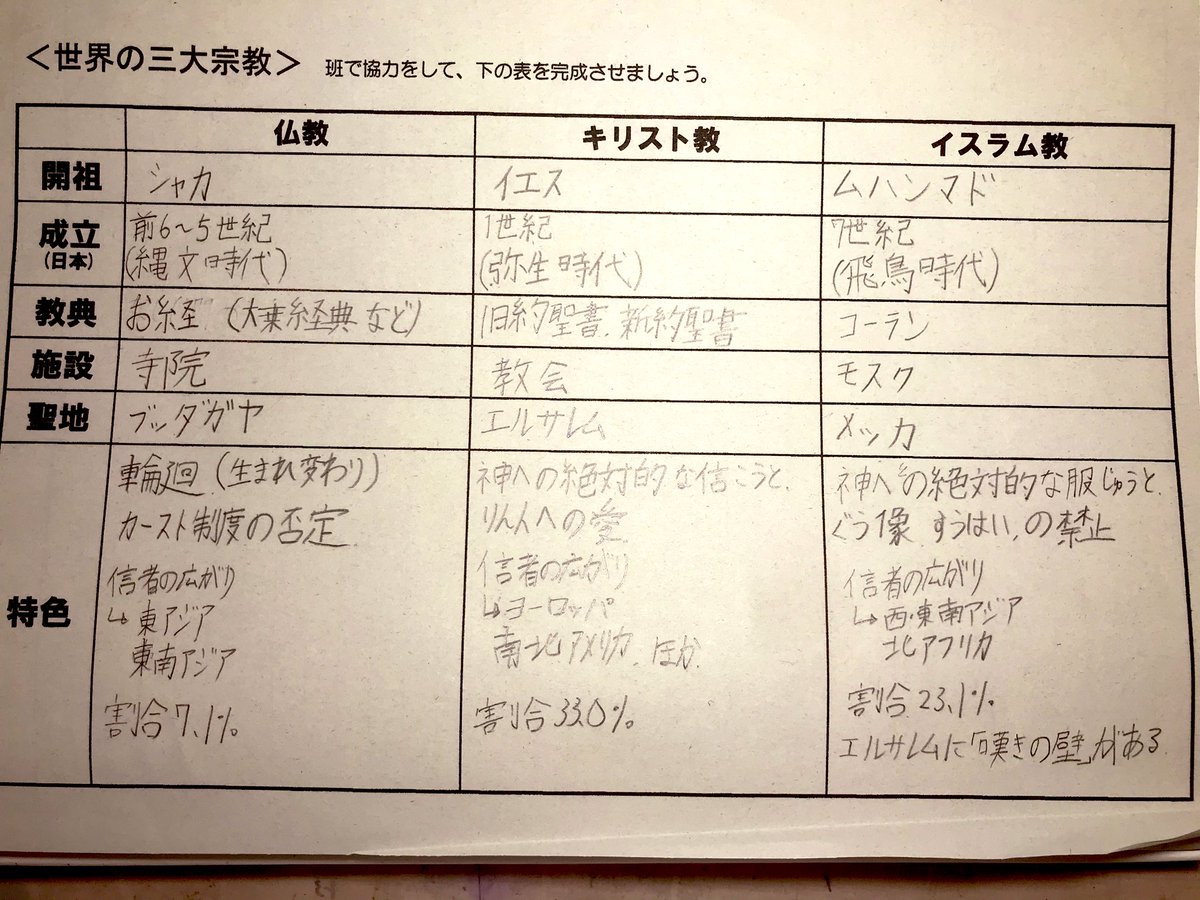 ＜世界の三大宗教＞ 班で協力をして、下の表を完成させましょう。
仏教 キリスト教 イスラム教
開祖 シャカ イエス ムハンマド
成立 前6〜5世紀 1世紀 7世紀
(日本) (縄文時代) (弥生時代) (飛鳥時代)
教典 お経 (大葉経典など) 旧約聖書、新約聖書 コーラン
施設 寺院 教会 モスク
聖地 ブッダガヤ エルサレム メッカ
特色
輪廻(生まれ変わり)
カースト制度の否定
信者の広がり
↳ 東アジア
東南アジア
割合 7.1%
神への絶対的な信こうと、
りん人への愛
信者の広がり
↳ヨーロッパ
南北アメリカ、ほか
割合 33.0%
神への絶対的な服じゅうと、
ぐう像 すうはい、の禁止
信者の広がり
↳ 西・東南アジア
北アフリカ
割合 23.1%
エルサレムに「嘆きの壁」がある